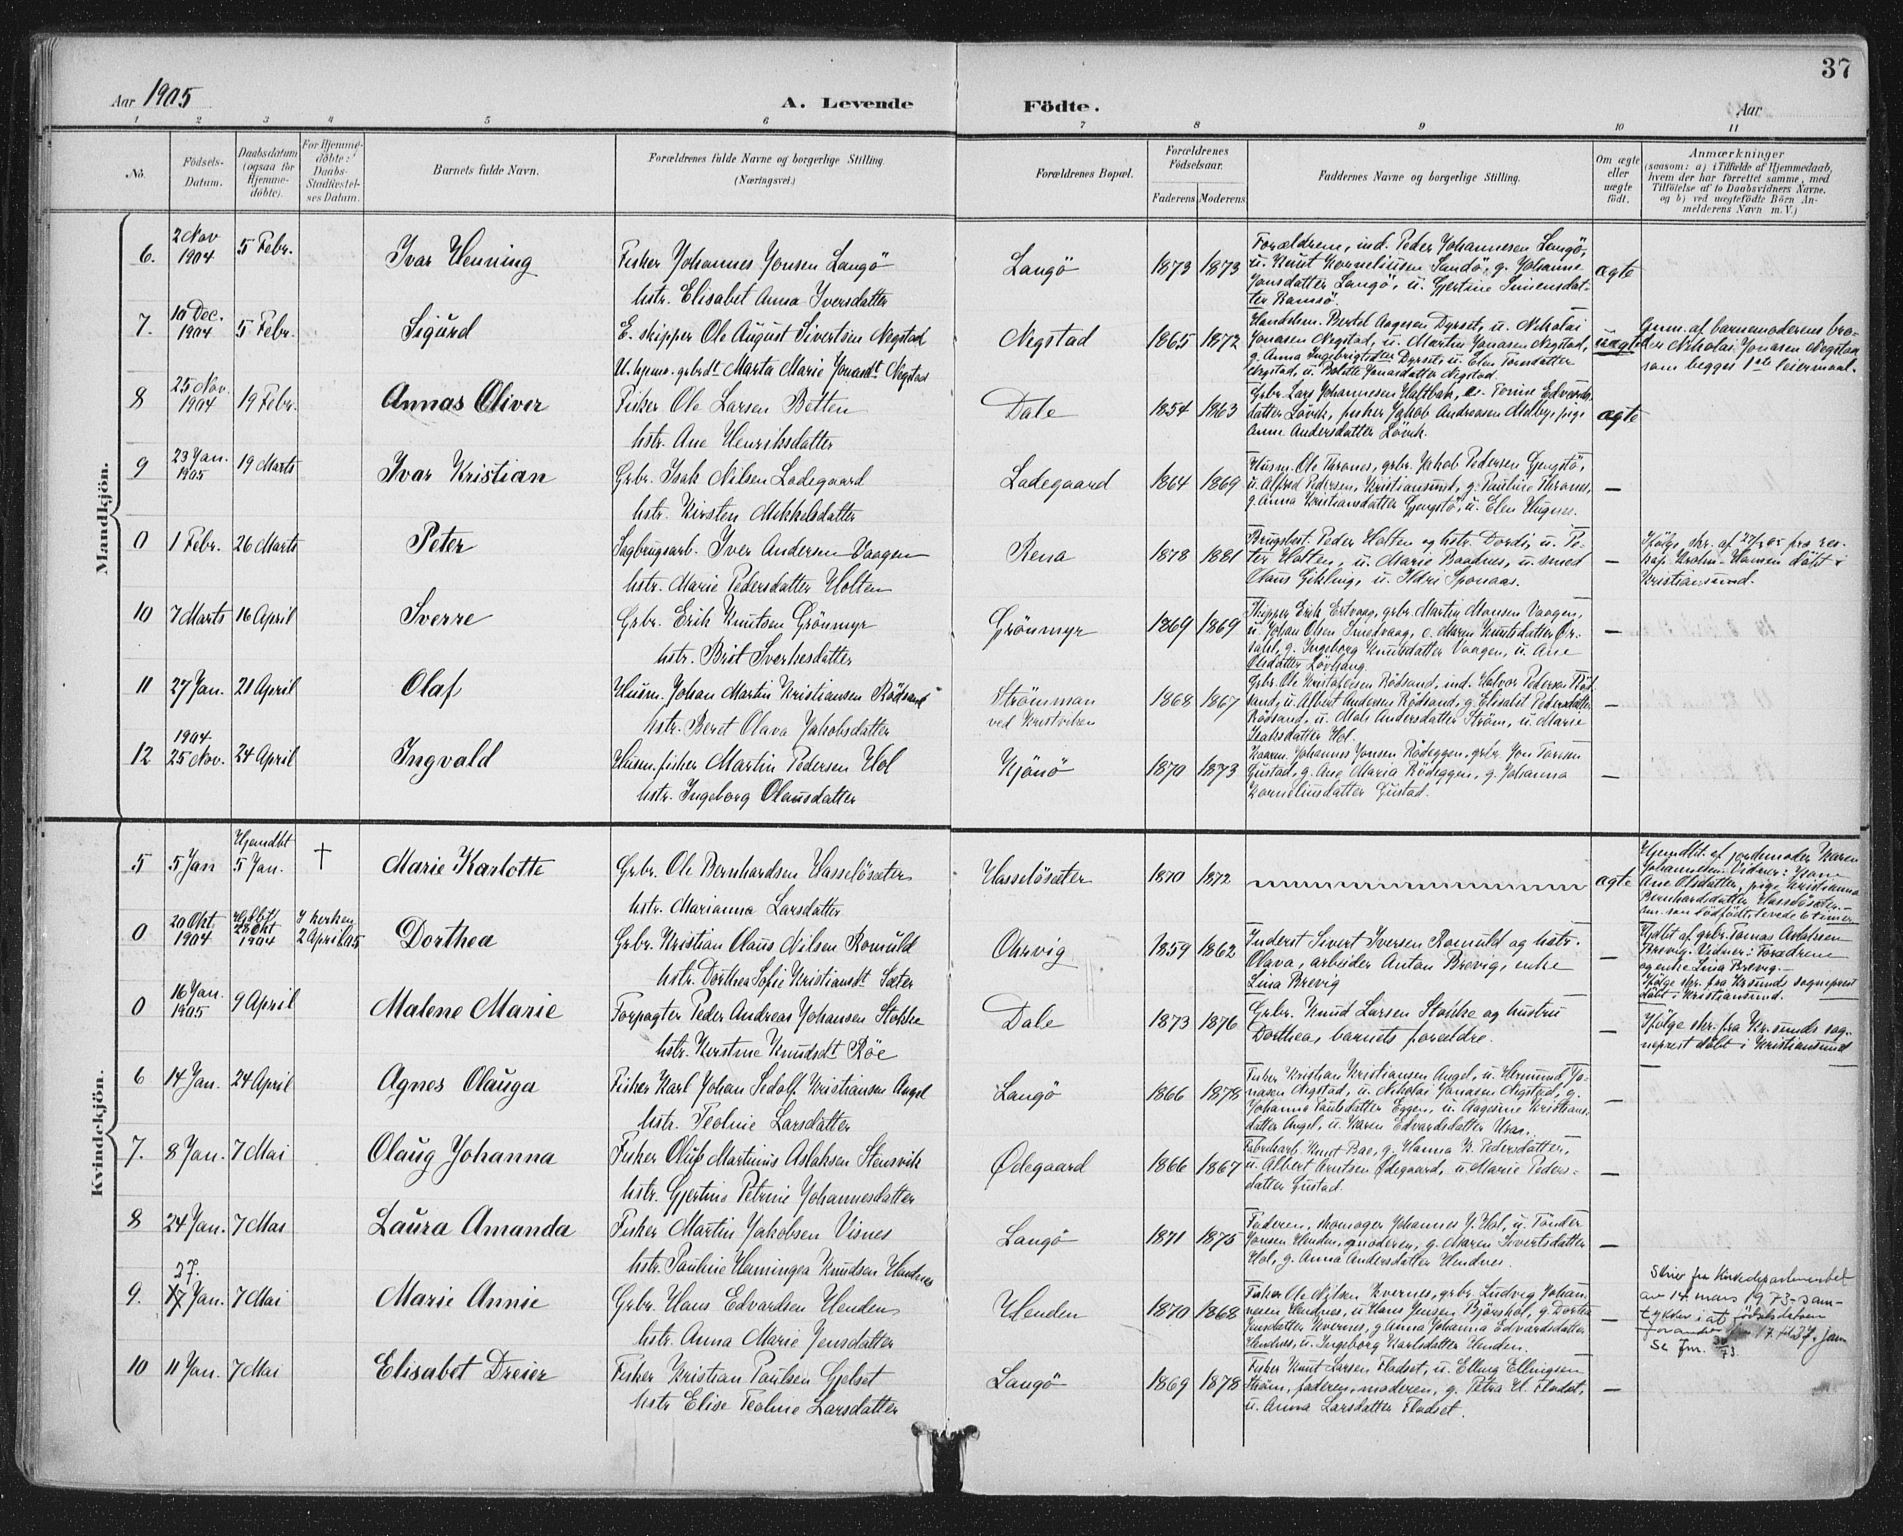 37
Aar 1905
A. Levende Födte.
Aar
1 2 3 4 5 6 7 8 9 10 11
No.
Födsels-Datum.
Daabsdatum (ogsaa for Hjemmedöbte).
For Hjemmedöbte: Daabs-Stadfæstelses Datum.
Barnets fulde Navn.
Forældrenes fulde Navne og borgerlige Stilling. (Næringsvei.)
Forældrenes Bopæl.
Forældrenes Födselsaar.
Faderens Moderens
Faddernes Navne og borgerlige Stilling.
Om ægte eller uægte födt.
Anmærkninger
(saasom: a) i Tilfælde af Hjemmedaab, hvem der har forrettet samme, med Tilföielse af to Daabsvidners Navne, og b) ved uægtefödte Börn Anmelderens Navn m. V.)
Mandkjön.
6. 2 Nov 1904 5 Febr. Ivar Henning
Fisker Johannes Jonsen Langö
hstr. Elisabet Anna Iversdatter
Langö 1873 1873
Forældrene, ind. Peder Johannesen Langö,
u. Knut Korneliusen Sandö, g. Johanne
Jonsdatter Langö, u. Gjertine
Ramsö.
ægte
7. 10 Dec. 1904 5 Febr. Sigurd
E. skipper Ole August Sivertsen Negstad
U. hjem. grbrdt. Marta Marie Jonasdt. Negstad
Negstad 1865 1872
Handelsm. Bertel Aagesen Dyrset, u. Nikolai
Jonasen Negstad, u. Martin Jonasen Negstad,
g. Anna Ingebrigtsdtter Dyrset, u. Elen Tomsdatter
Negstad, u. Bolette Jonasdatter Negstad.
uægte
Anm. af barnemoderens bro-
der Nikolai Jonasen Negstad
som begges 1ste leiermaal.
8 25 Nov. 1904 19 Febr. Annas Oliver
Fisker Ole Larsen Botten
hstr. Ane Henriksdatter
Dale 1854 1863
Grbr. Lars Johannesen Haltbak, e. Torine Edvards-
datter Lövik, fisker Jakob Andreasen Melby, pige
Anne Andersdatter Lövik.
ægte
9 23 Jan. 1905 19 Marts Ivar Kristian
Grbr. Isak Nilsen Ladegaard
hstr. Kirsten Mikkelsdatter
Ladegaard 1864 1869
Husm. Ole Thronæs, grbr. Jakob Pedersen Gjengstö,
u. Alfred Pedersen, Kristiansund, g. Pauline Thronæs,
g. Anna Kristiansdatter Gjengstö, u. Elen
—
0 1 Febr. 26 Marts Peter
Sagbrugsarb. Iver Andersen Vaagen
hstr. Marie Pedersdatter Holten
Rena 1878 1881
Brugsbest. Peder Holten og hstr. Dordi, u. Pe-
ter Holten, u. Marie Raadnes, u. smed
Olaus Gikling, u. Ildri Sponaas.
—
Ifölge skr. af fra res.
kap. Hansen döbt i
Kristiansund.
10 7 Marts 16 April Sverre
Grbr. Erik Knutsen Grönmyr
hstr. Brit Sverkesdatter
Grönmyr 1869 1869
Skipper Erik Ertvaag, grbr. Martin Monsen Vaagen,
u. Johan Olsen Smedvaag, e. Maren Knutsdatter
g. Ingeborg Knutsdatter Vaagen, u. Ane
Olsdatter
—
11 27 Jan. 21 April Olaf
Husm. Johan Martin Kristiansen Rödsand
hstr. Berit Olava Jakobsdatter
Strömman
ved Kristvikен 1868 1867
Grbr. Ole Kristoffersen Rödsand, ind. Halvor Pedersen Röd-
sand, u. Albert Andersen Rödsand, g. Elisabet Pedersdatter
Rödsand, u. Mali Andersdatter Ström, u. Marie
Isaksdatter Hol.
—
12 1904 25 Nov. 24 April Ingvald
Husm. fisker Martin Pedersen Hol
hstr. Ingeborg Olausdatter
Kjönö 1870 1873
Kaarm. Johannes Jonsen Rödeggen, grbr. Jon Tarisen
Gustad, g. Ane Maria Rödeggen, g. Johanna
Korneliusdatter Gustad.
—
Kvindekjön.
5 5 Jan Hjemdbt 5 Jan. † Marie Karlotte
Grbr. Ole Bernhardsen Hasselösæter
hstr. Marianna Larsdatter
Hasselösæter 1870 1872
ægte
Hjemdbt. af jordemoder Karen
Johannesen. Vidner:
Ane Olsdatter, pige Kristianna
Bernhardsdatter Hasselösæter.—
Anm. som dödfödt, levede 6 timer
0 20 Okt 1904 28 Okt 1904 I kirken 2 April 05 Dorthea
Grbr. Kristian Olaus Nilsen Romuld
hstr. Dorthea Sofie Kristiansdt. Sæter
Ohrvig 1859 1862
Inderst Sivert Iversen Romuld og hstr.
Olava, arbeider Anton Brevig, enke
Lina Brevig
—
Hjdbt af grbr. Tomas Aslaksen
Brevig. Vidner: Forældrene
og enke Lina Brevig.—
Ifölge skr. fra Krsunds sogneprest
döbt i Kristiansund.
0 16 Jan. 1905 9 April Malene Marie
Forpagter Peder Andreas Johansen Stokke
hstr. Kerstine Knudsdt. Röe
Dale 1873 1876
Grbr. Knud Larsen Stokke og hustru
Dorthea, barnets forældre.
—
Ifölge skr. fra Kr.sunds sog-
neprest döbt i Kristiansund
6 14 Jan. 24 April Agnes Olauga
Fisker Karl Johan Sedolf Kristiansen Angel
hstr. Teoline Larsdatter
Langö 1866 1878
Fisker Kristian Kristiansen Angel, u. Hermund Jo-
nasen Negstad, u. Nikolai Jonasen Negstad, g.
Johanna Paulsdatter Eggen, u. Aagesine Kristians-
datter Angel, u. Karen Edvardsdatter
—
7. 8 Jan. 7 Mai Olaug Johanna
Fisker Oluf Martinus Aslaksen Stensvik
hstr. Gjertine Petrine Johannesdatter
Ødegaard 1866 1867
Fabrikarb. Knut Bae, g. Hanna K. Pedersdatter,
u. Albert Arntsen Ødegaard, u. Marie Peders-
datter Gustad.
—
8 24 Jan. 7 Mai Laura Amanda
Fisker Martin Jakobsen Visnes
hstr. Pauline Hamingea Knudsen Hendnes
Langö 1871 1875
Faderen, skomager Johannes J. Hol, u. Tönder
Jonsen Henden, moderen, g. Maren Sivertsdatter
Hol, g. Anna Andersdatter Hendnes.
—
9. 27. 17 Jan. 7 Mai Marie Annie
Grbr. Hans Edvardsen Hendens
hstr. Anna Marie Jensdatter
Henden 1870 1868
Fisker Ole Nilsen Kvernes, grbr. Ludvig Johan-
nesen Hendnes, u. Hans Jensen Björshol, g. Dortea
Jensdatter Kvernes, g. Anna Johanna Edvardsdatter
Hendnes, u. Ingeborg Karlsdatter Henden.
—
Skriv fra Kirkedepartementet
av 14. mars 1973 sam-
tykker i at födselsdatoen
forandres fra 17. til 27. jan
Se jnr. 30/73.
10 11 Jan. 7 Mai Elisabet Dreier
Fisker Kristian Paulsen Gjelset
hstr Elise Teoline Larsdatter
Langö 1869 1878
Fisker Knut Larsen Fladset, u. Elling Ellingsen
Ström, faderen, moderen, g. Petra H. Fladset,
u. Anna Larsdatter Fladset.
—